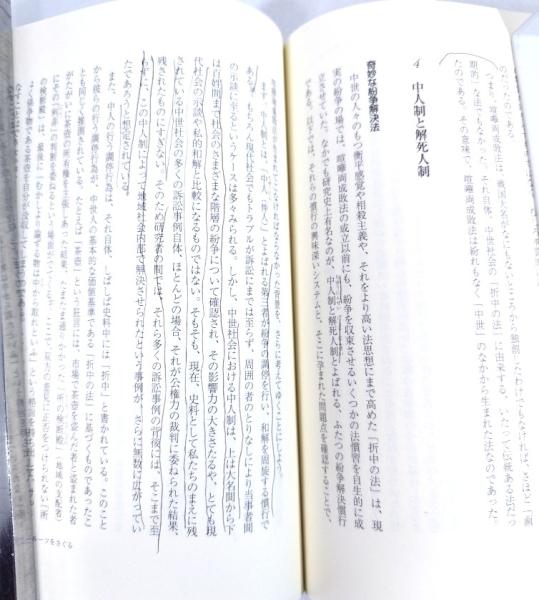 のだったのである
つまり、喧嘩両成敗法は、戦国大名が
期的」な法でもなかった。それ自体、中世社会の「折中の法」に由来する、
たものである。その意味で、喧嘩両成敗法は紛れもなく「中世」のなかから生まれた法なのであった。
4 中人制と解死人制
奇妙な紛争解決法
中世の人々のもつ衡平感覚や相殺主義や、それをより高い法思想にまで高めた「折中の法」は、現
実の紛争の場では、喧嘩両成敗法の成立以前にも、紛争を収束させるいくつかの法慣習を自生的に成
立させていた。なかでも研究史上有名なのが、中人制と解死人制とよばれる、ふたつの紛争解決慣行
である。以下では、それらの慣行の興味深いシステムと、そこに孕まれた問題点を確認することで、
さらに考えてゆくことにしよう。
まず、中人制とは、「中人（仲人）」とよばれる第三者が紛争の調停を行い、和解を周旋する慣行で
ある。もちろん現代社会でもトラブルが訴訟にまでは至らず、周囲の者のとりなしにより当事者間
の示談に至るというケースは多々みられる。しかし、中世社会における中人制は、上は大名間から下
は百姓間まで社会のさまざまな階層の紛争について確認され、その影響力の大きさたるや、とても現
代社会の示談や私的和解と比較になるものではない。そもそも、現在、史料として私たちのまえに残
されている中世社会の多くの訴訟事例自体、ほとんどの場合、それが公権力の裁判に委ねられた結果、
残されたものにすぎない。そのため研究者の間では、それら多くの訴訟事例の背後には、そこまで至
らずに、この中人制によって地域社会内部で解決させられたという事例が、さらに無数に広がってい
たであろうと想定されている。
また、中人の行う調停行為は、それ自体、しばしば史料中には「折中」と書かれている。このこと
から彼らの行う調停行為が、中世人の基本的な価値基準である「折中の法」に基づくものであったこ
とも同じく推測されている。たとえば「茶壺」という狂言には、市場で茶壺を盗んだ者と盗まれた者
がたがいに茶壺の所有権を主張しあった結果、たまたま通りかかった「所の検断殿」（地域の支配者）